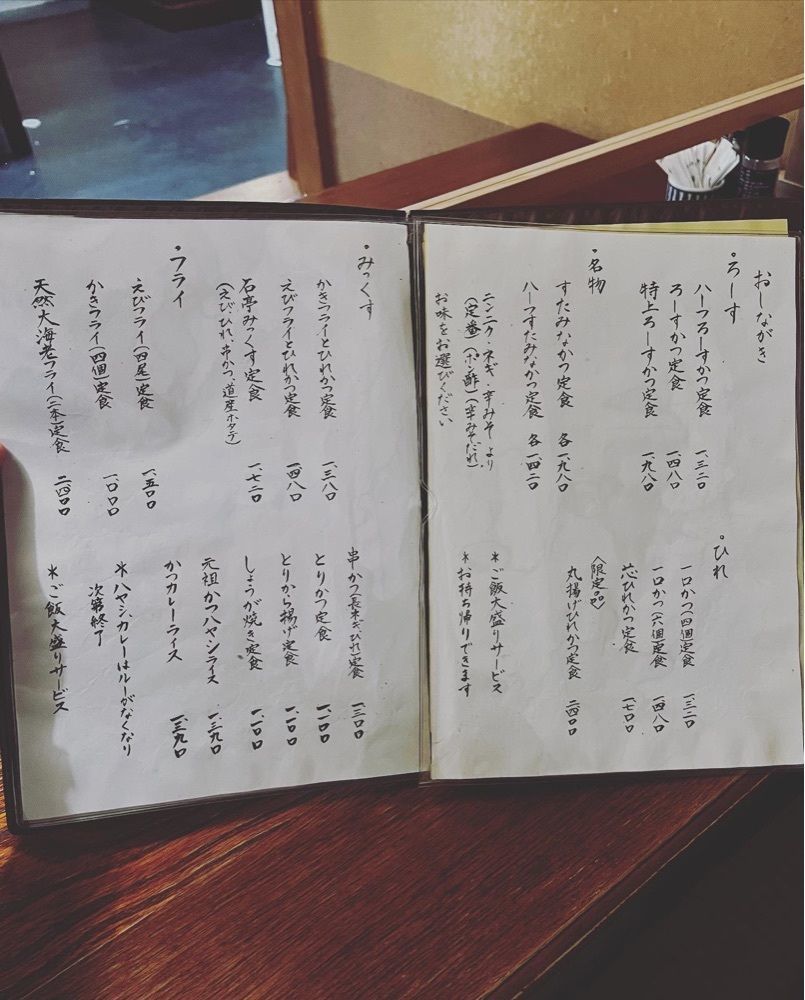 おしながき
・ろーす
ハーフろーすかつ定食 一、三二〇
ろーすかつ定食 一、四八〇
特上ろーすかつ定食 一、九八〇
・ひれ
一口かつ(四個)定食 一、三二〇
一口かつ(六個)定食 一、四八〇
芯ひれかつ定食 一、七〇〇
〈限定の品〉
丸揚げひれかつ定食 二四〇〇
・名物
すたみなかつ定食 各一、九八〇
ハーフすたみなかつ定食 各一、四二〇
ニンニク・ネギ・辛みそより
(定番)(ポン酢)(辛みそだれ)
お味をお選びください
*ご飯大盛りサービス
*お持ち帰りできます
・みっくす
かきフライとひれかつ定食 一、三八〇
えびフライとひれかつ定食 一、四八〇
石亭みっくす定食 一、七二〇
(えび、ひれ、串かつ、道産ホタテ)
・フライ
えびフライ(四尾)定食 一、五〇〇
かきフライ(四個)定食 一、〇〇〇
天然大海老フライ(二本)定食 二四〇〇
串かつ(長ネギ、ひれ)定食 一、三〇〇
とりかつ定食 一、一〇〇
とりから揚げ定食 一、一〇〇
しょうが焼き定食 一、一〇〇
元祖かつハヤシライス 一、三九〇
かつカレーライス 一、三九〇
*ハヤシ、カレーはルーがなくなり
次第終了
*ご飯大盛りサービス